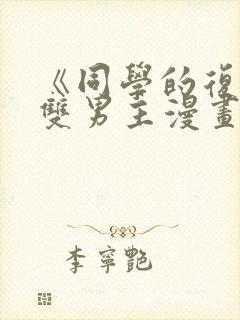 《同學的復
雙男主漫畫
李寧艷